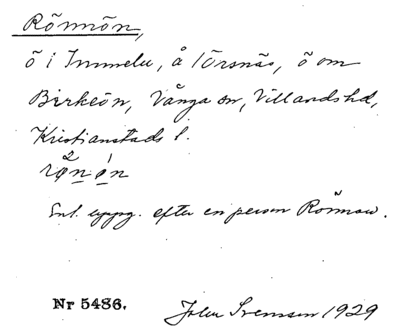 Rönnön,
ö i Immeln, å Törsnäs, ö om
Birkeön, Vånga sn, Villands hd,
Kristianstads l.
Enl. uppg. efter en person Rönnow.
Nr 5486. John Svensson 1929